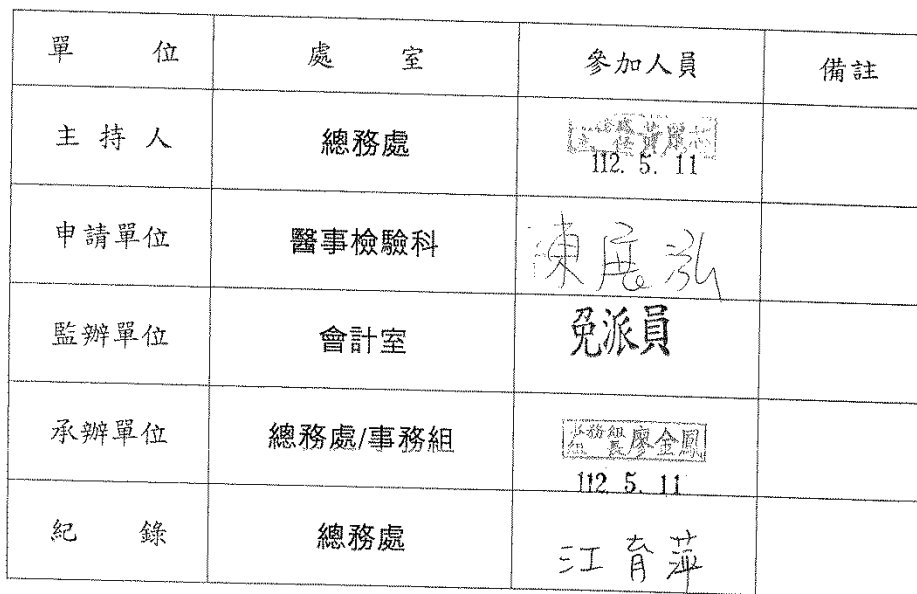 單 位 處 室 參加人員 備註
主 持 人 總務處
112. 5. 11
申請單位 醫事檢驗科 陳展泓
監辦單位 會計室 免派員
承辦單位 總務處/事務組 事務組組長廖金鳳
112. 5. 11
紀 錄 總務處 江育萍